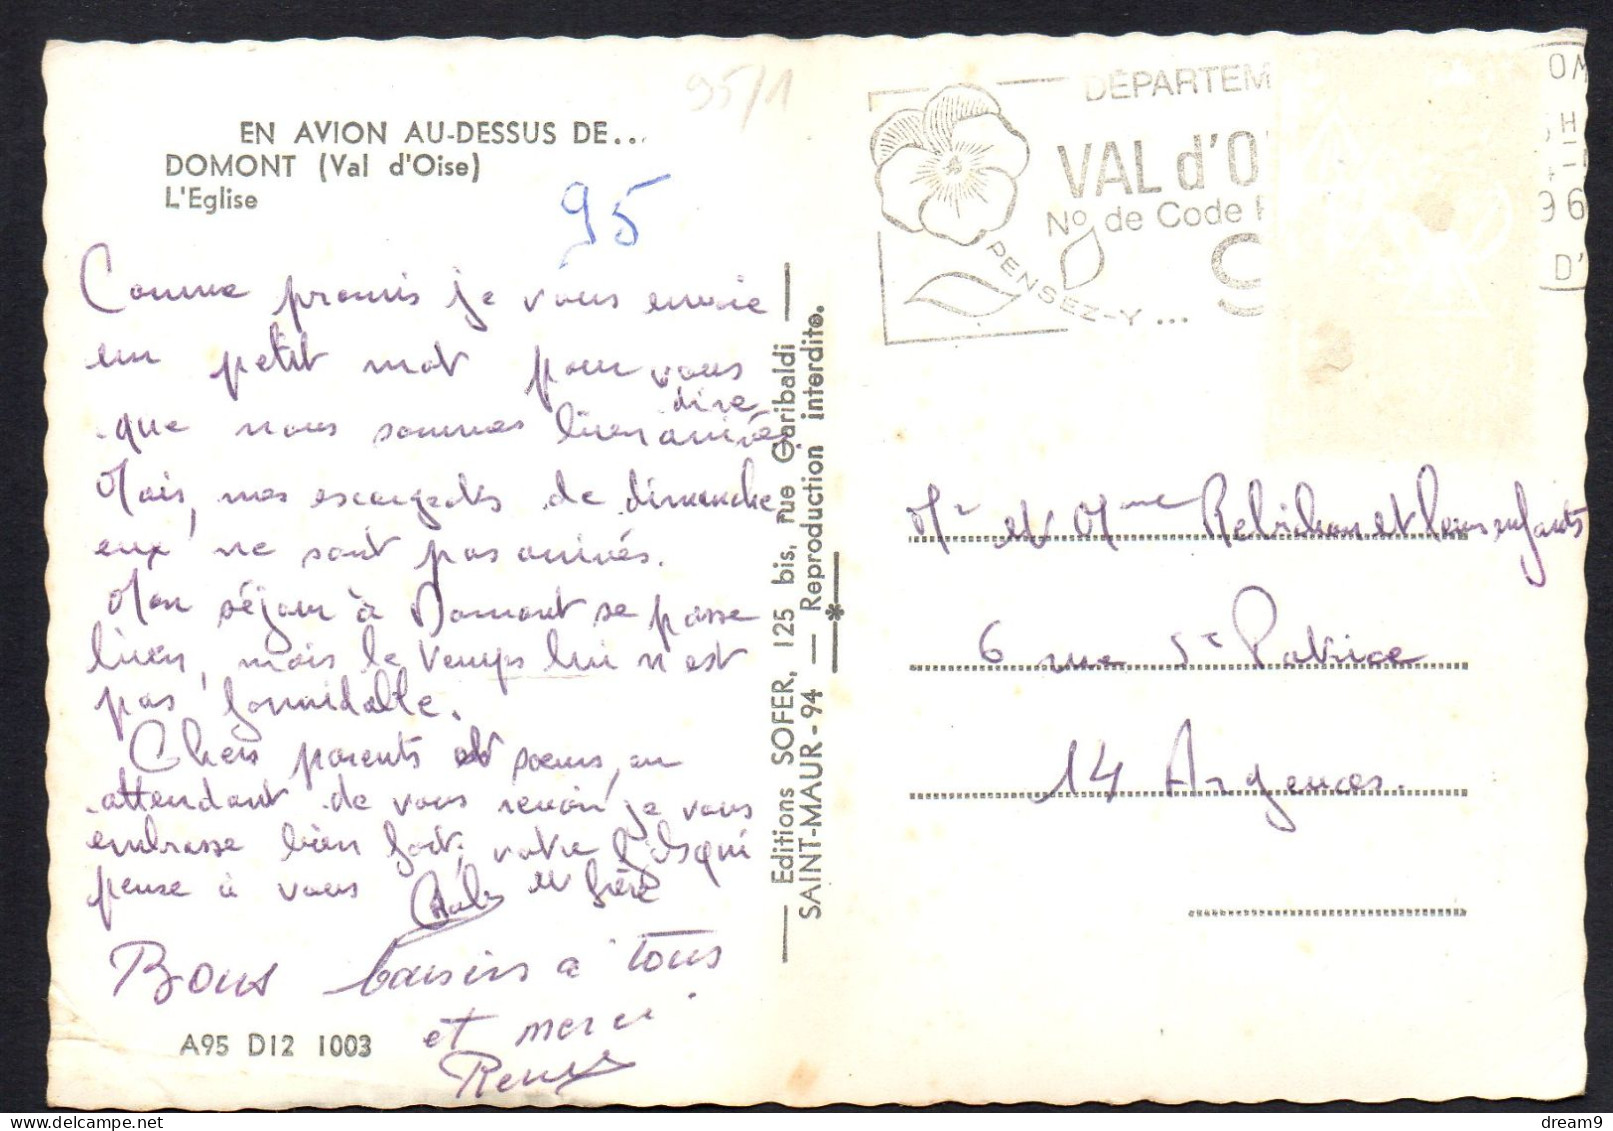 95/1
EN AVION AU-DESSUS DE...
DOMONT (Val d'Oise)
L'Eglise
95
Comme promis je vous envoie
un petit mot pour vous
dire
que nous sommes bien arrivés.
Mais, mes escargots de dimanche
eux, ne sont pas arrivés.
Mon séjour à Domont se passe
bien, mais le temps lui n'est
pas formidable.
Chers parents et soeurs, en
attendant de vous revoir, je vous
embrasse bien fort, votre fils qui
pense à vous et frère
Bons baisers à tous
et merci.
A95 D12 1003
Editions SOFER, 125 bis, rue Garibaldi
SAINT-MAUR - 94 — Reproduction interdite.
DÉPARTEM
VAL d'O
No de Code
PENSEZ-Y ...
9
OM
H
96
D'
Mr et Mme et leurs enfants
6 rue St Patrice
14 Argences.
dream9